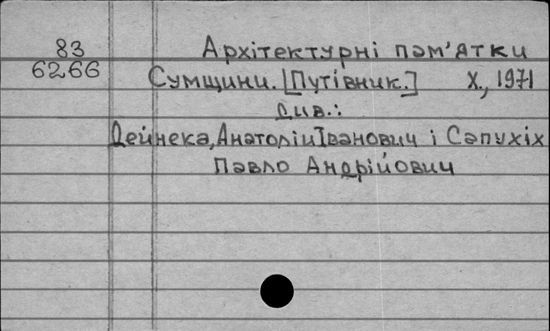 83 Архітектурні пам'ятки
6266 Сумщини. [Путівник.] Х., 1971
Див.:
Дейнека, Анатолій Іванович і Сапухіх
Павло Андрійович